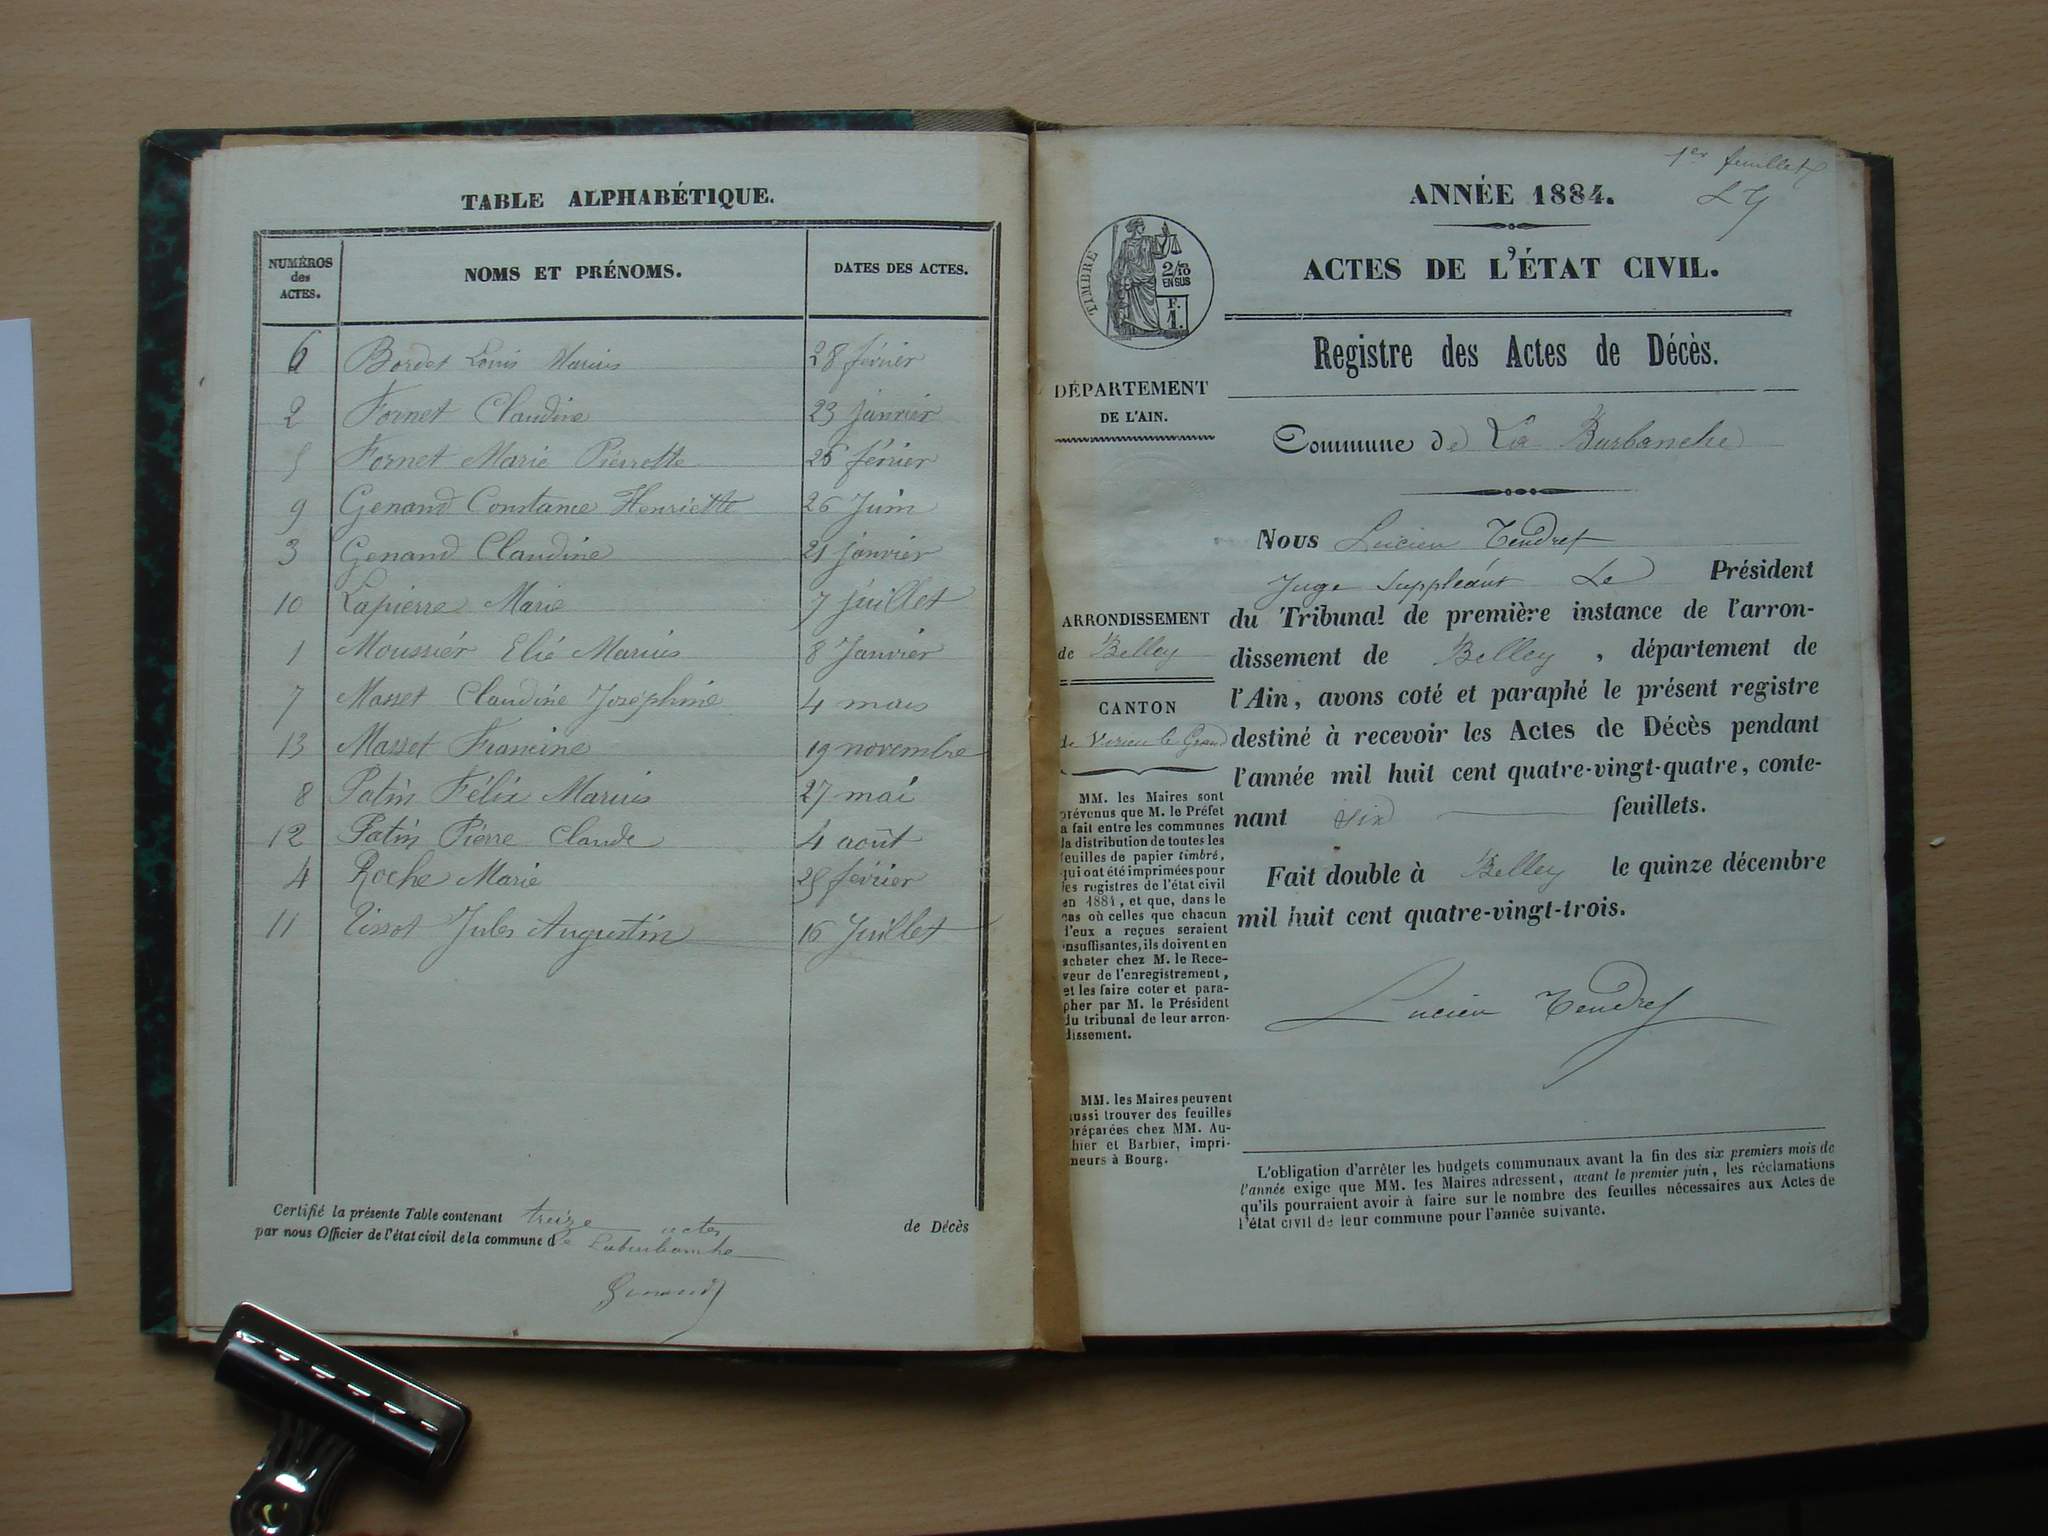 TABLE ALPHABÉTIQUE.
NUMÉROS des ACTES. NOMS ET PRÉNOMS. DATES DES ACTES.
6 Bordet Louis Marius 28 février
2 Fornet Claudine 23 janvier
5 Fornet Marie Pierrette 26 février
9 Genand Constance Henriette 26 Juin
3 Genand Claudine 21 janvier
10 Lapierre Marie 7 juillet
1 Moussier Elie Marius 8 Janvier
7 Masset Claudine Joséphine 4 mars
13 Masset Francine 19 novembre
8 Patin Félix Marius 27 mai
12 Patin Pierre Claude 4 août
4 Roche Marie février
11 Tissot Jules Augustin 16 Juillet
Certifié la présente Table contenant treize actes de Décès
par nous Officier de l'état civil de la commune de Laburbanche
Genand
1er feuillet
ANNÉE 1884. LT
ACTES DE L'ÉTAT CIVIL.
TIMBRE
2/10
EN SUS
F.
1.
Registre des Actes de Décès.
DÉPARTEMENT
DE L'AIN.
Commune de La Burbanche
Nous Lucien Tendret
Juge Suppléant Le Président
du Tribunal de première instance de l'arron-
dissement de Belley, département de
l'Ain, avons coté et paraphé le présent registre
destiné à recevoir les Actes de Décès pendant
l'année mil huit cent quatre-vingt-quatre, conte-
nant six feuillets.
Fait double à Belley le quinze décembre
mil huit cent quatre-vingt-trois.
Lucien Tendret
ARRONDISSEMENT
de Belley
CANTON
de Virieu le Grand
MM. les Maires sont
prévenus que M. le Préfet
a fait entre les communes
la distribution de toutes les
feuilles de papier timbré,
qui ont été imprimées pour
les registres de l'état civil
en 1884, et que, dans le
cas où celles que chacun
d'eux a reçues seraient
insuffisantes, ils doivent en
acheter chez M. le Rece-
veur de l'enregistrement,
et les faire coter et para-
pher par M. le Président
du tribunal de leur arron-
dissement.
MM. les Maires peuvent
aussi trouver des feuilles
préparées chez MM. Au-
thier et Barbier, impri-
meurs à Bourg.
L'obligation d'arrêter les budgets communaux avant la fin des six premiers mois de
l'année exige que MM. les Maires adressent, avant le premier juin, les réclamations
qu'ils pourraient avoir à faire sur le nombre des feuilles nécessaires aux Actes de
l'état civil de leur commune pour l'année suivante.